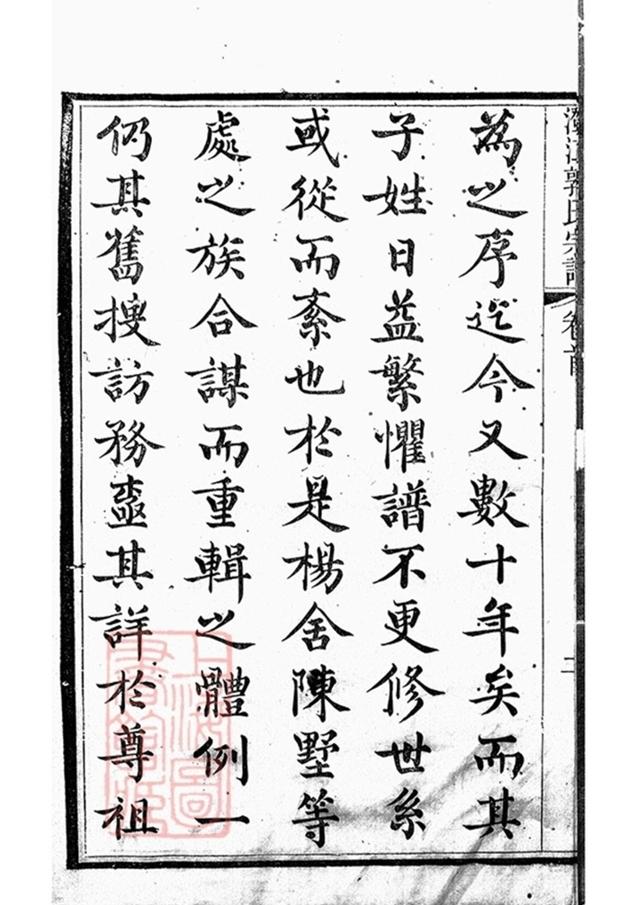 江郭氏宗譜 卷首 二
為之序迄今又數十年矣而其
子姓日益繁懼譜不更修世系
或從而紊也於是楊舍陳墅等
處之族合謀而重輯之體例一
仍其舊搜訪務盡其詳於尊祖
上海圖